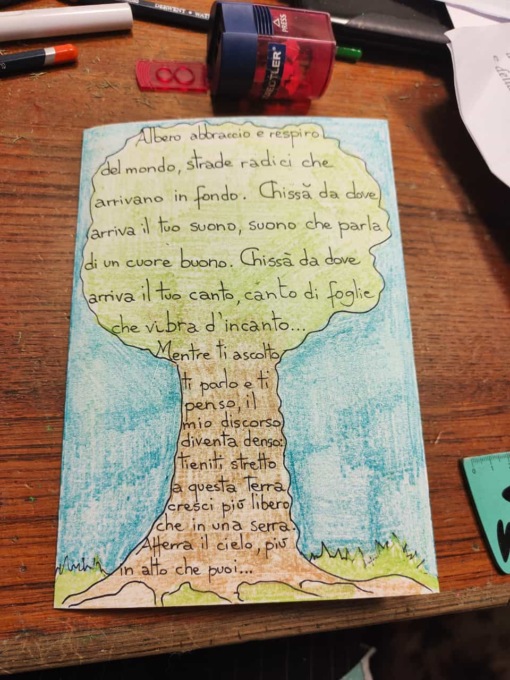 DERWENT
PRESS
STAEDTLER
Albero abbraccio e respiro
del mondo, strade radici che
arrivano in fondo. Chissà da dove
arriva il tuo suono, suono che parla
di un cuore buono. Chissà da dove
arriva il tuo canto, canto di foglie
che vibra d'incanto...
Mentre ti ascolto
ti parlo e ti
penso, il
mio discorso
diventa denso:
tieniti stretto
a questa terra
cresci più libero
che in una serra.
Afferra il cielo, più
in alto che puoi...